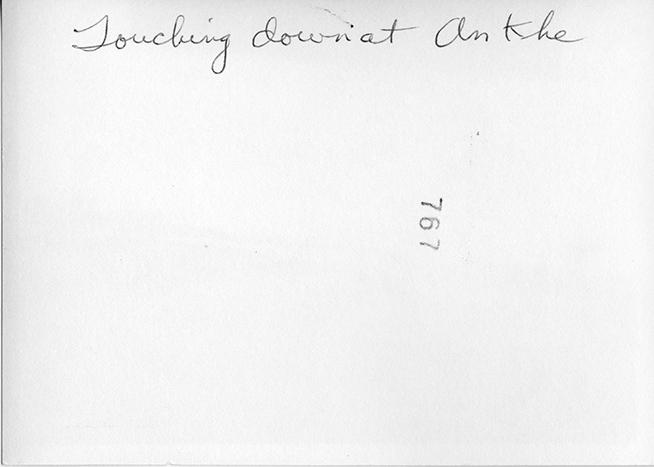 Touching down at An Khe
767